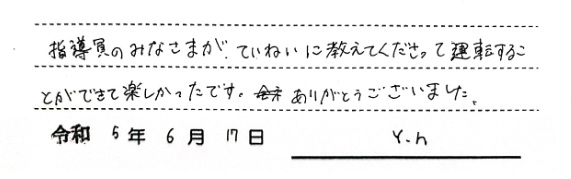 指導員のみなさまが、ていねいに教えてくださって運転するこ
とができて楽しかったです。ありがとうございました。
令和 5年 6月 17日 Y.n